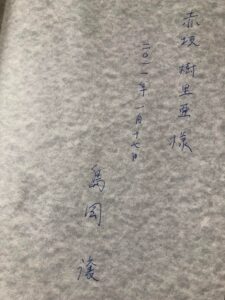 赤坂 樹里亜 様
二〇一一年 一月十七日
島岡 譲